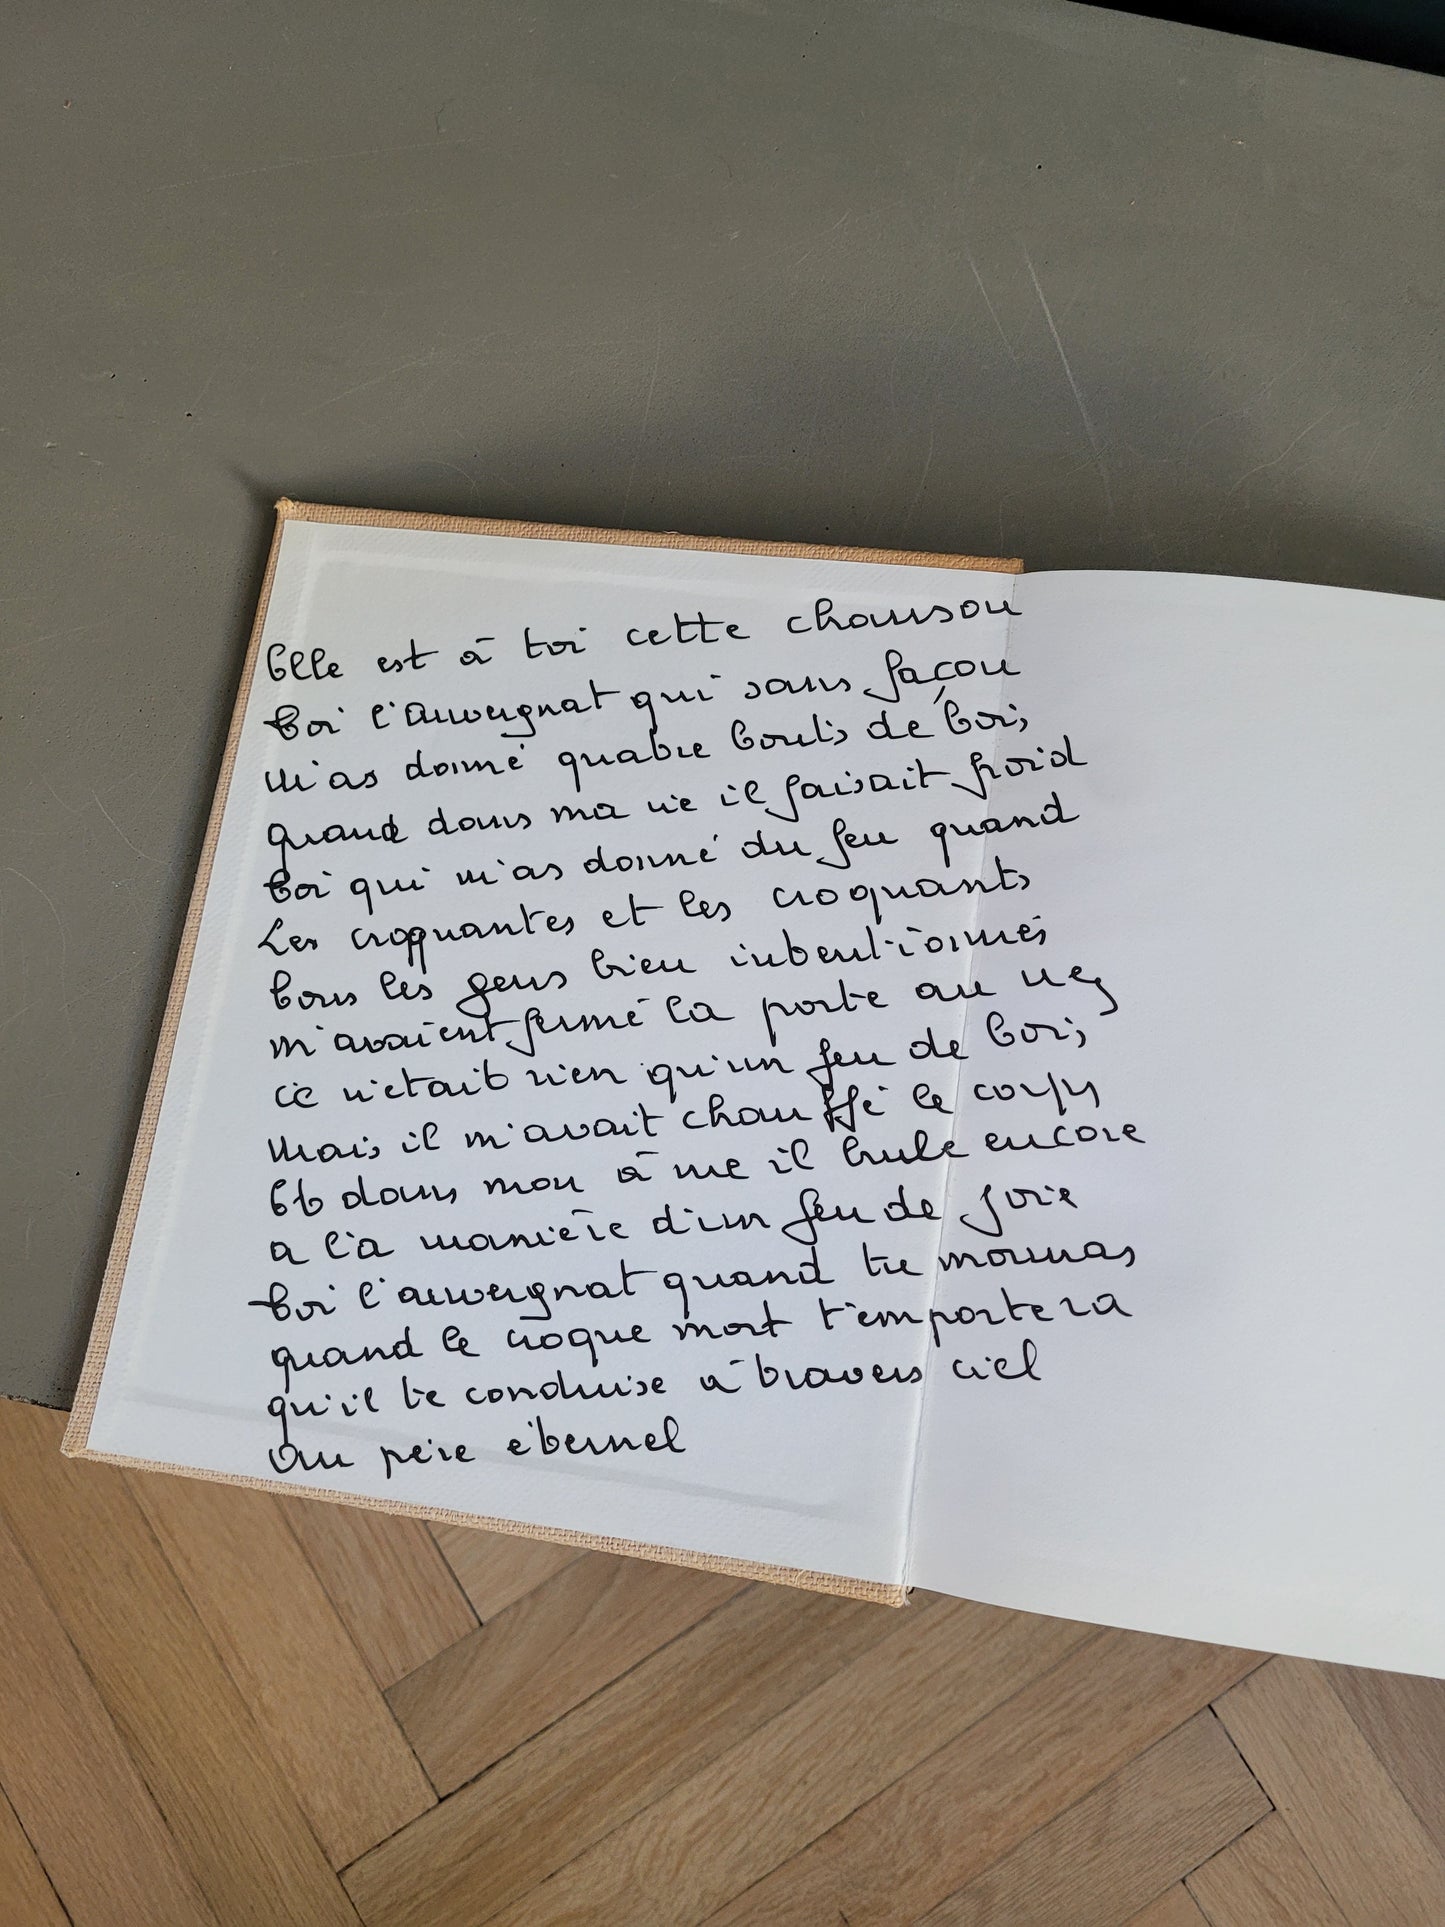 Elle est à toi cette chanson
Toi l'auvergnat qui sans façon
m'as donné quatre bouts de bois
quand dans ma vie il faisait froid
Toi qui m'as donné du feu quand
Les croquantes et les croquants
Tous les gens bien intentionnés
m'avaient fermé la porte au nez
ce n'était rien qu'un feu de bois
mais il m'avait chauffé le corps
Et dans mon âme il brule encore
a la manière d'un feu de joie
Toi l'auvergnat quand tu mourras
quand le croque mort t'emportera
qu'il te conduise à travers ciel
Au père éternel